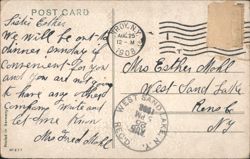 POST CARD
Sister Esther
We will be out to
dinner sunday if
convenient for you
and you are not going
to have any other
company Write and
let me know
Mrs Fred Mohl
AUG 25
12 - M
1908
Mrs Esther Mohl
West Sand Lake
Rens Co
NY
WEST SAND LAKE, N.Y.
REC'D.